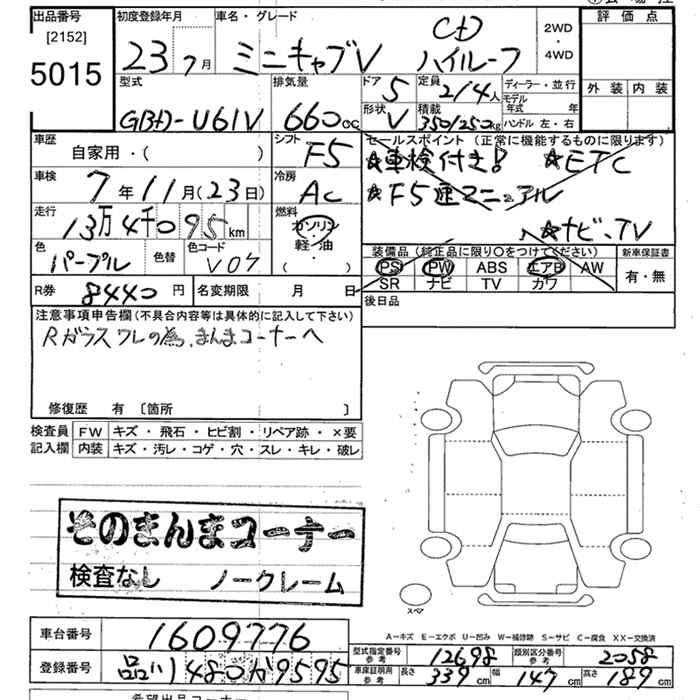 出品番号
[2152]
5015
初度登録年月
23 7月
車名・グレード
ミニキャブV CD ハイルーフ
2WD
・
4WD
評価点
外装 内装
型式
GBD-U61V
排気量
660cc
ドア 5
形状 V
定員 2/4人
積載 350/250kg
ディーラー・並行
モデル年式 年
ハンドル 左・右
車歴
自家用・( )
シフト F5
車検 7年11月(23日)
冷房 AC
走行 13万4千095km
燃料
ガソリン
・
軽油
( )
色 パープル
色替
色コード V07
R券 8440円
名変期限 月 日
セールスポイント (正常に機能するものに限ります)
☆車検付き! ☆ETC
☆F5速マニュアル
☆ナビ、TV
装備品 (純正品に限り○をつけてください)
PS PW ABS エアB AW
SR ナビ TV カワ
新車保証書
有・無
後日品
注意事項申告欄(不具合内容等は具体的に記入して下さい)
Rガラスワレの為、まんまコーナーへ
修復歴 有 [箇所 ]
検査員 FW キズ・飛石・ヒビ割・リペア跡・×要
記入欄 内装 キズ・汚レ・コゲ・穴・スレ・キレ・破レ
そのまんまコーナー
検査なし ノークレーム
スペア
A-キズ E-エクボ U-凹み W-補修跡 S-サビ C-腐食 XX-交換済
車台番号 1609776
登録番号 品川 480 か 9595
型式指定番号 参考 12698
類別区分番号 参考 2058
車庫証明用 参考 長さ 339cm 幅 147cm 高さ 189cm
希望出品コーナー